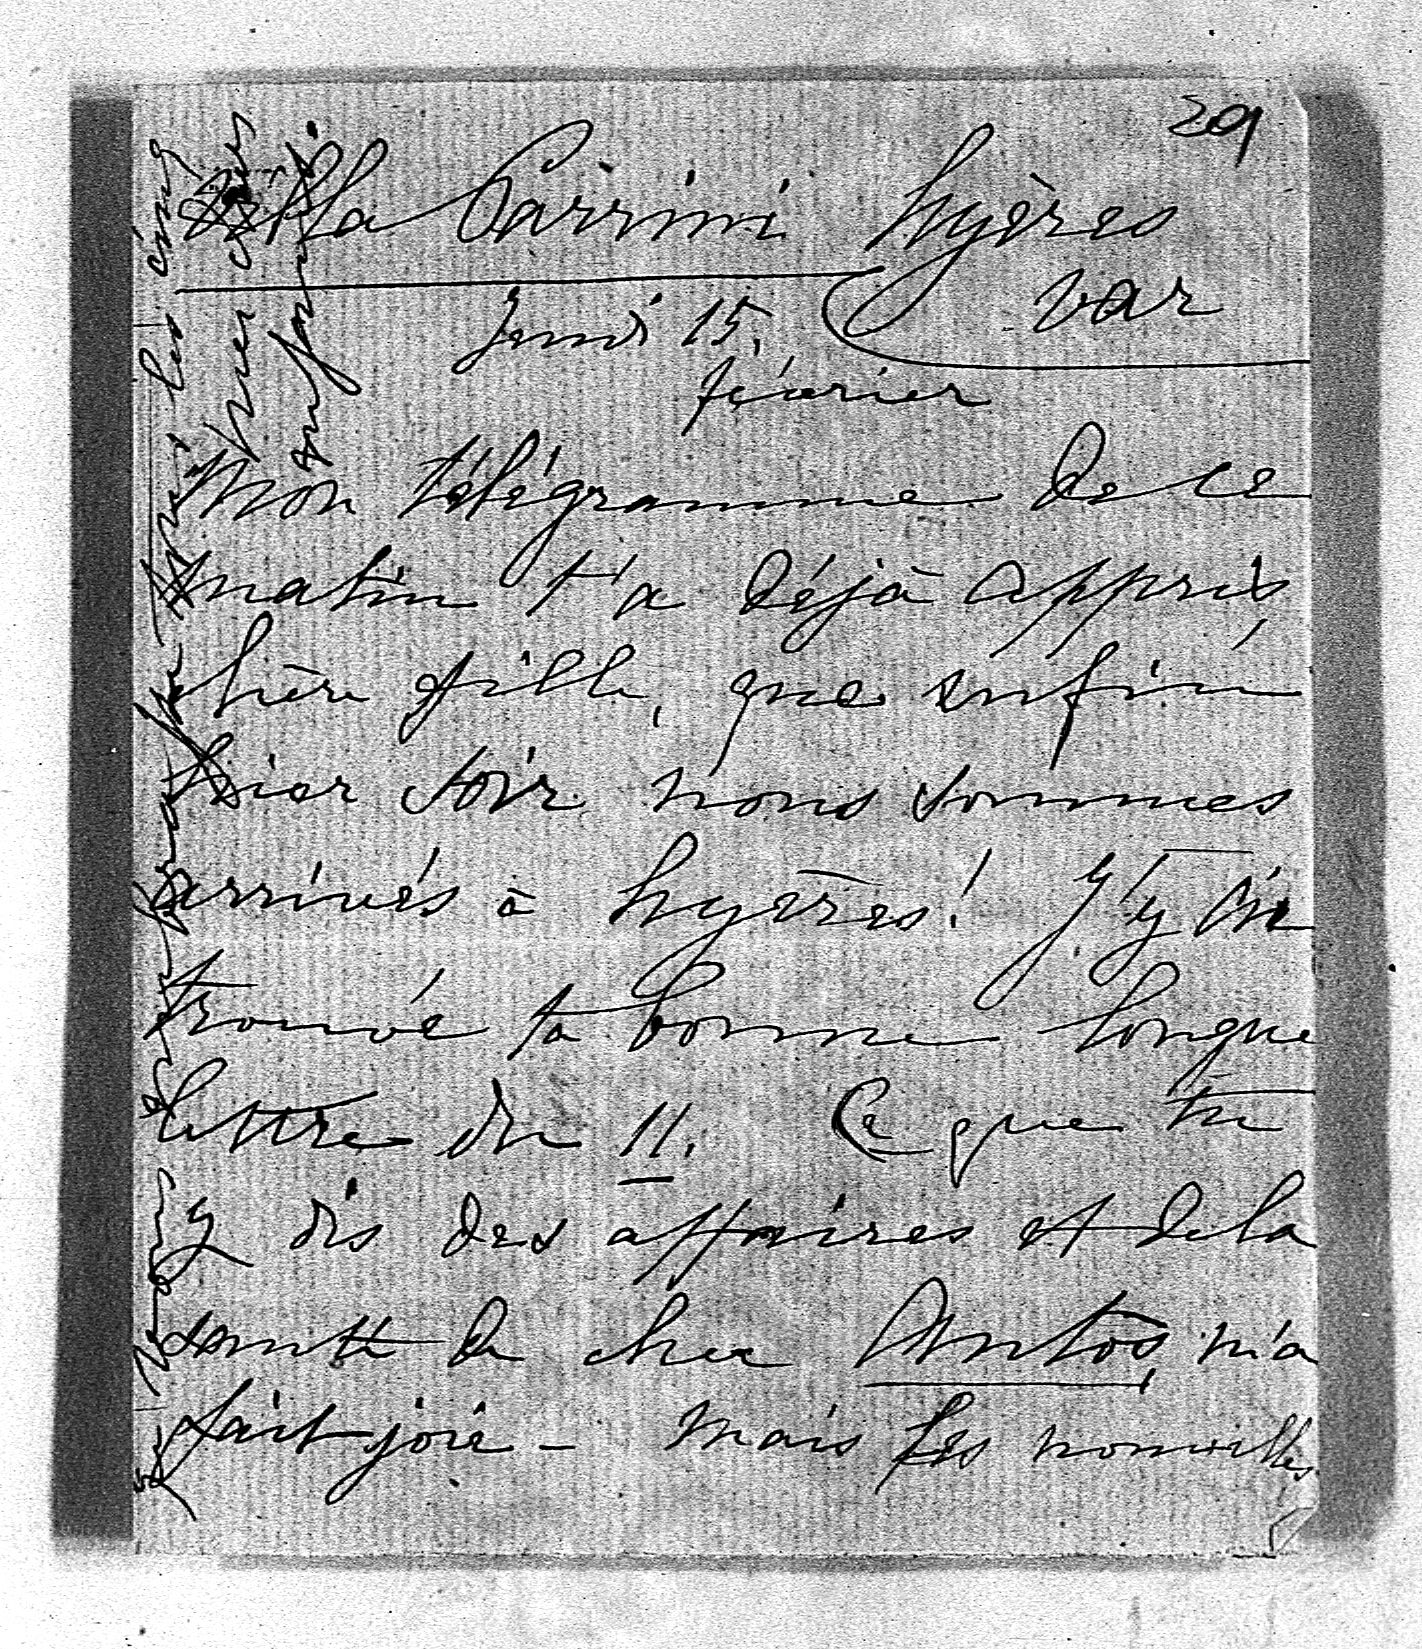 29
Villa Parrini Hyères
Var
Jeudi 15.
février
Mon télégramme de ce
matin t'a déjà appris
chère fille, que enfin
hier soir nous sommes
arrivés à Hyères! J'y ai
trouvé ta bonne longue
lettre du 11. Ce que tu
y dis des affaires et de la
santé de cher Antos, m'a
fait joie - Mais les nouvelles
les cinq